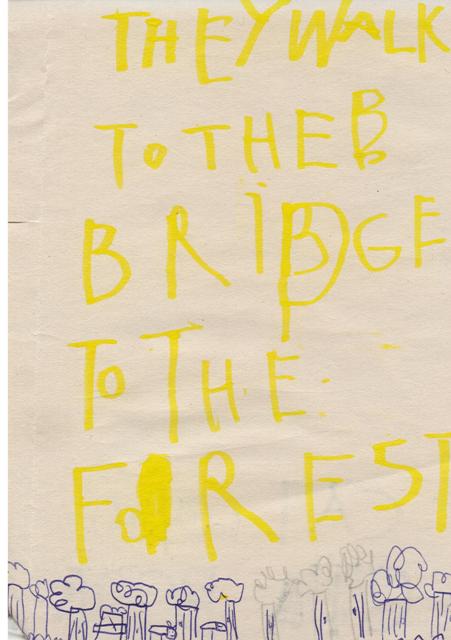 THEY WALK
TO THE B
BRIDGE
TO THE
FOREST